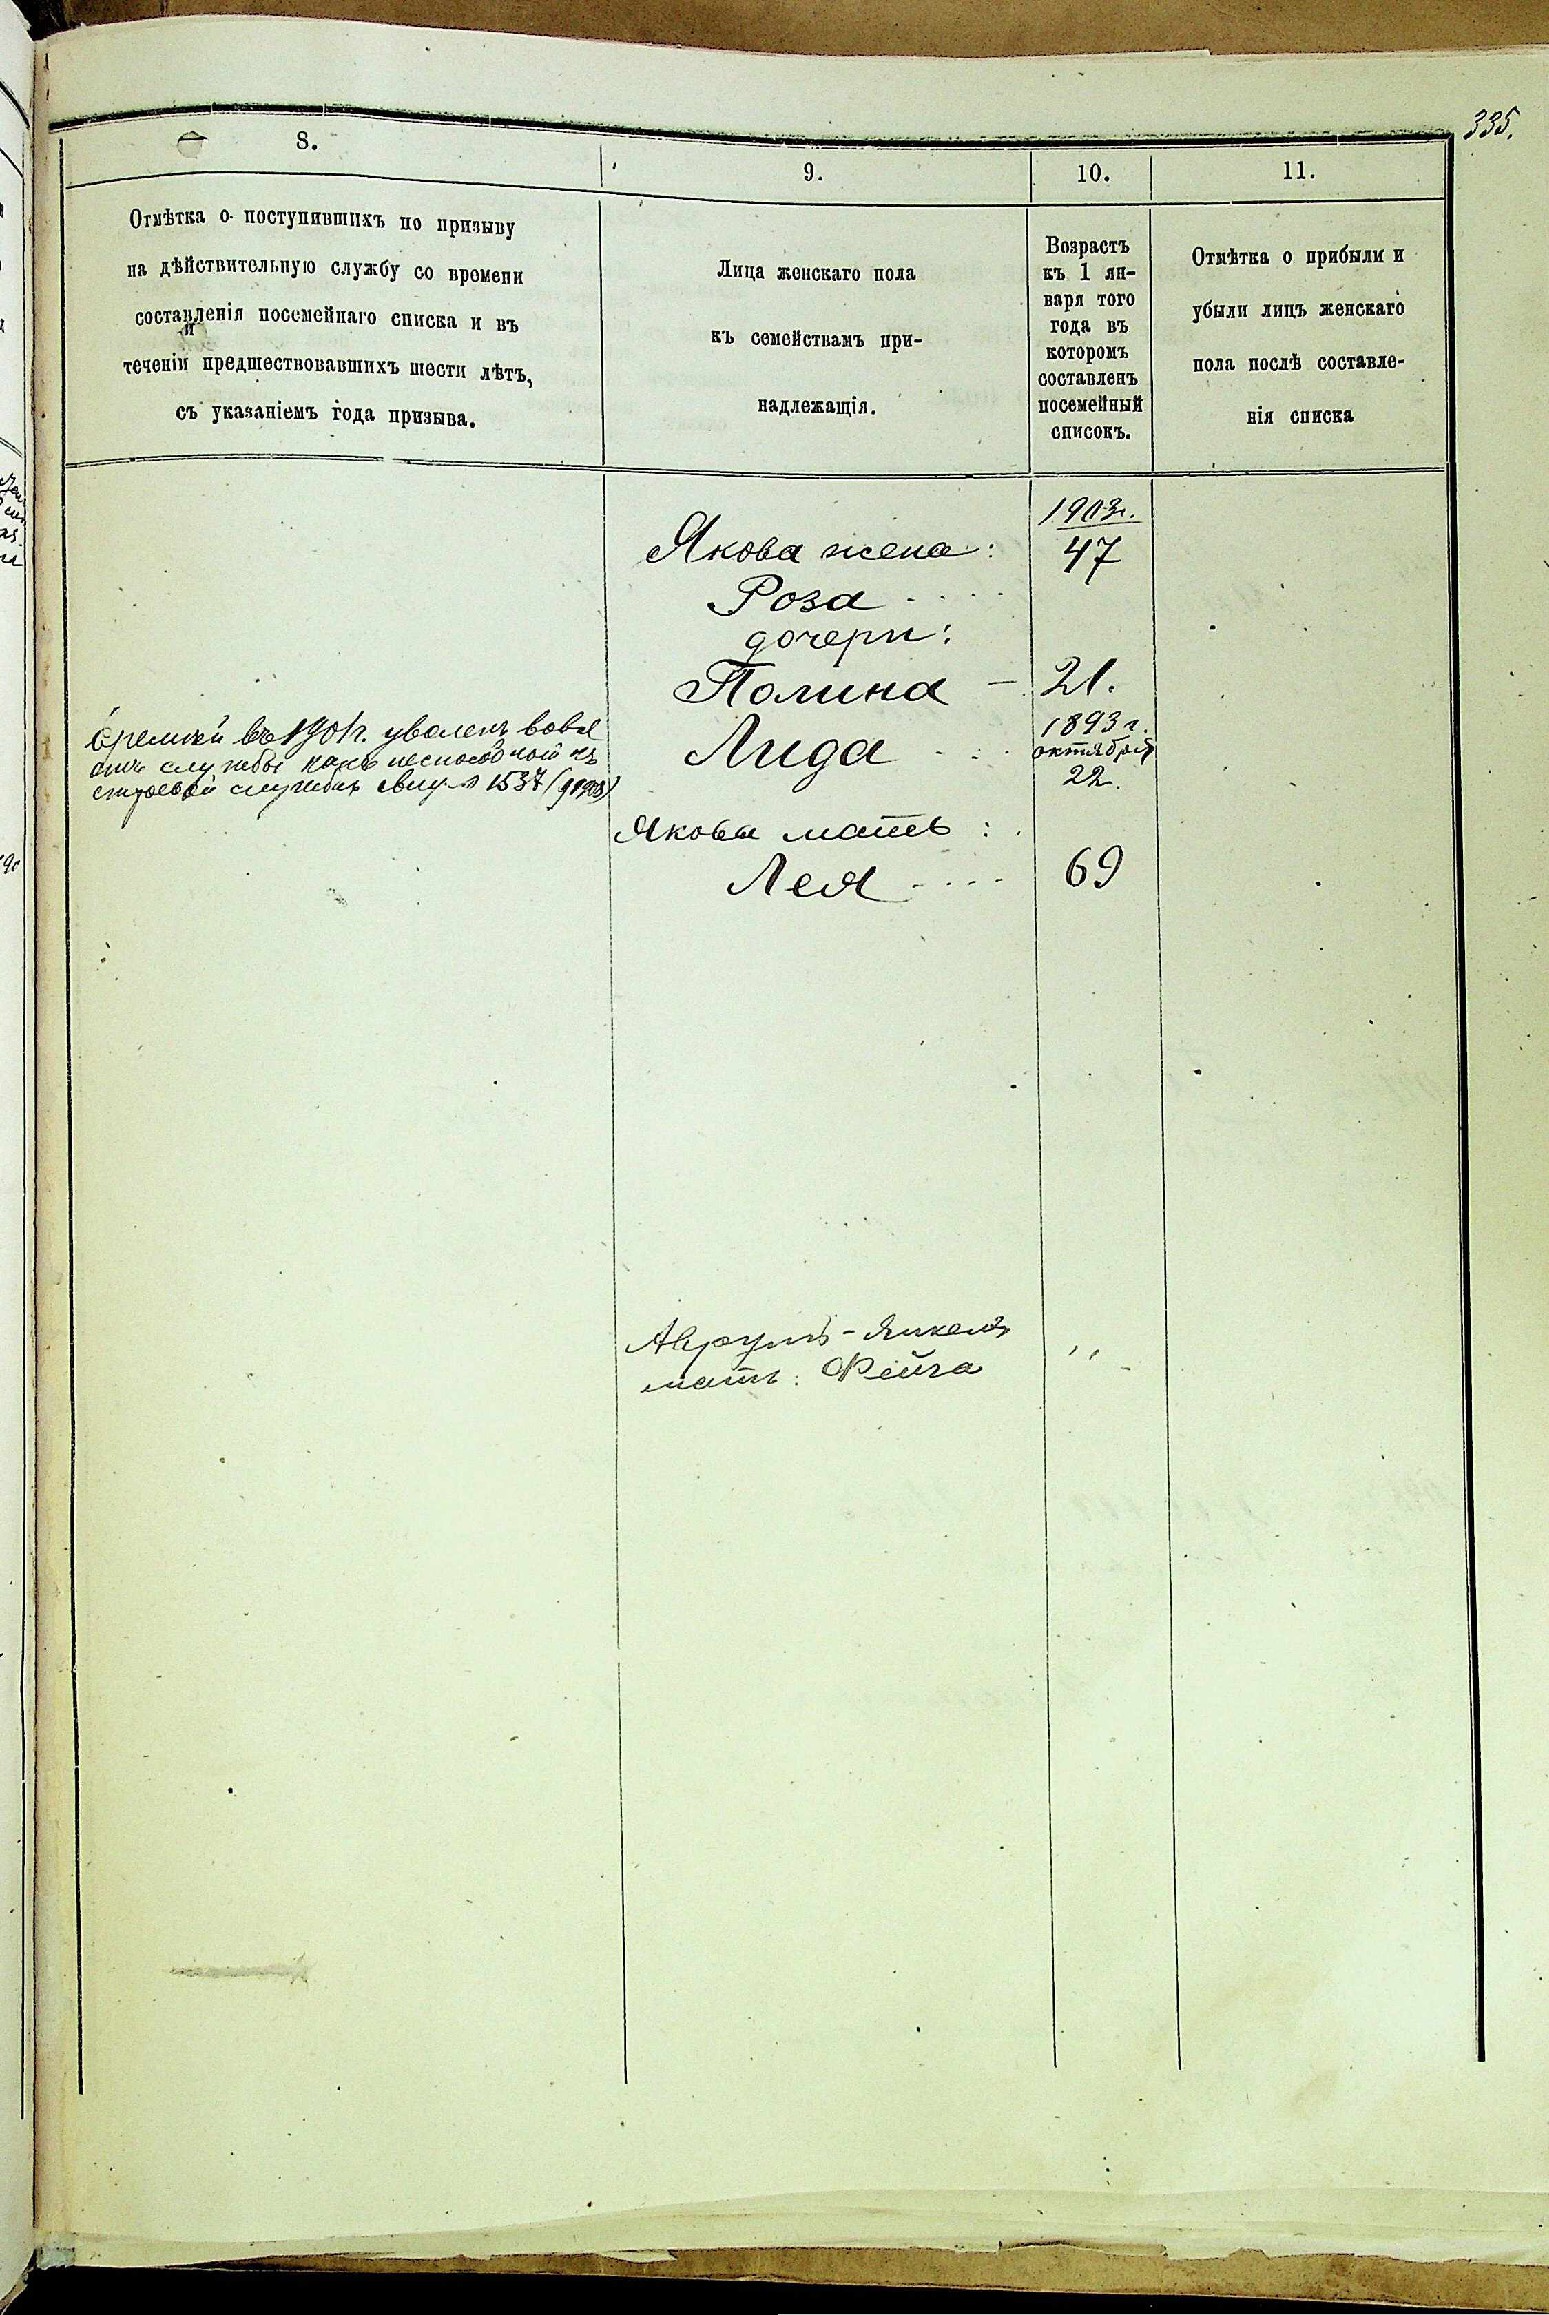 335.
8.
9.
10.
11.
Отмѣтка о поступившихъ по призыву
на дѣйствительную службу со времени
составленія посемейнаго списка и въ
теченіи предшествовавшихъ шести лѣтъ,
съ указаніемъ года призыва.
Лица женскаго пола
къ семействамъ при-
надлежащія.
Возрастъ
къ 1 ян-
варя того
года въ
которомъ
составленъ
посемейный
списокъ.
Отмѣтка о прибыли и
убыли лицъ женскаго
пола послѣ составле-
нія списка
1903г.
Якова жена: 47
Роза
дочери:
Полина — 21.
Лида
1893 г.
октября
22.
въ 1901г. уволенъ вовсе
отъ службы какъ неспособный къ
строевой службѣ 1537
Якова мать:
Лея 69
Аврумъ-Янкеля
мать: Фейга "